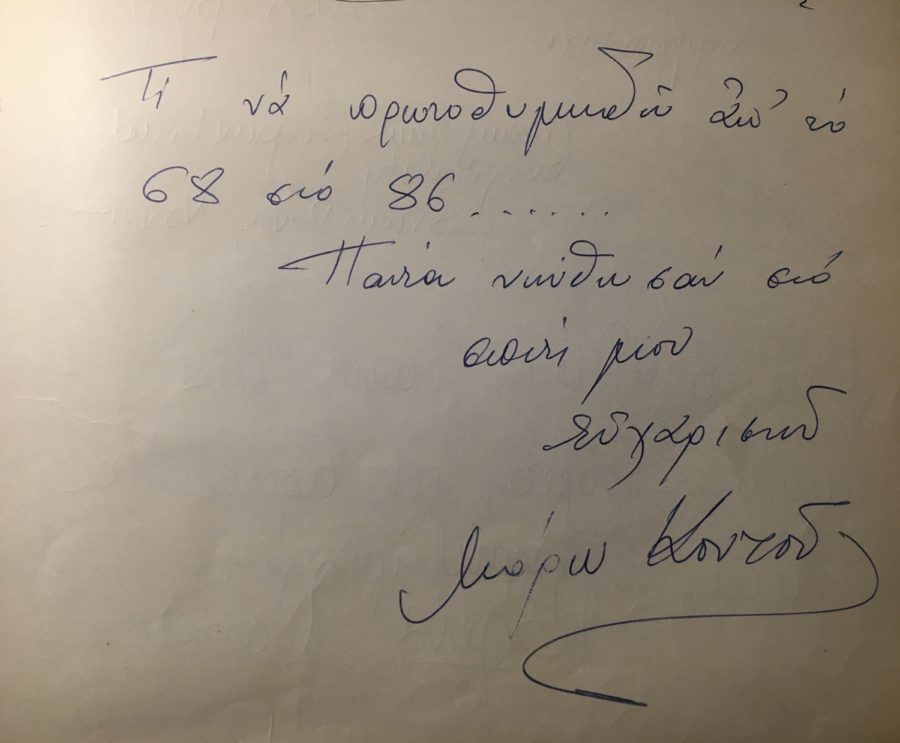 Τί νά πρωτοθυμηθῶ ἀπ' τό
68 στό 86.......
Πάντα νιώθω σάν στό
σπίτι μου
εὐχαριστῶ
Μάρω Κοντοῦ